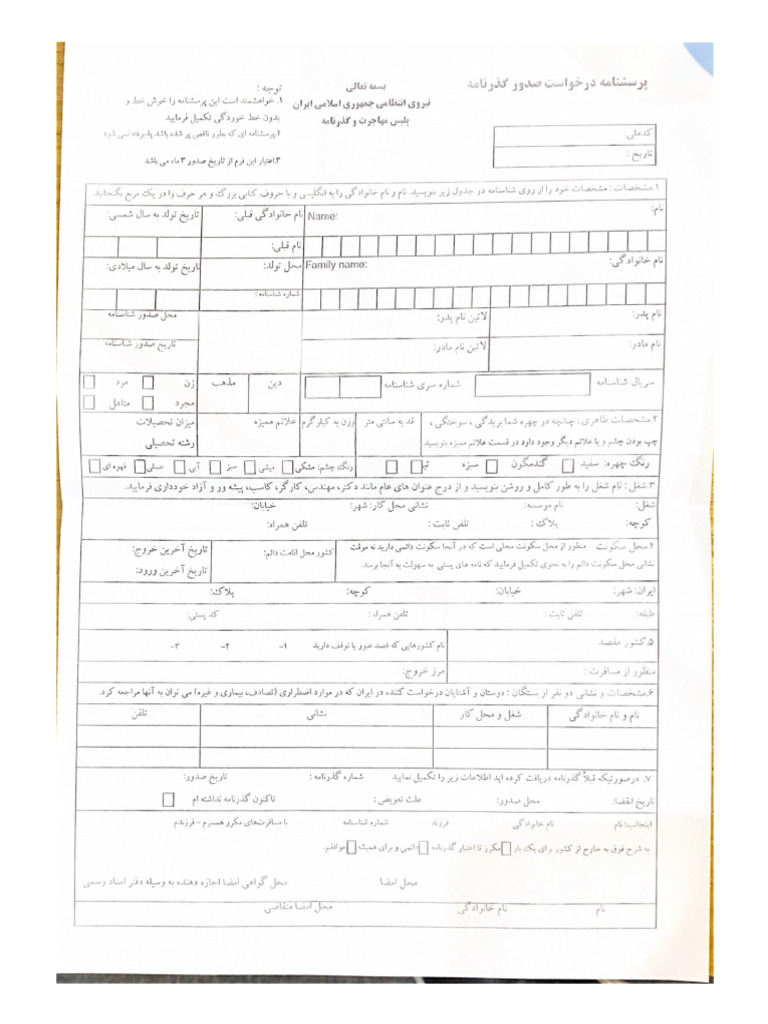 پرسشنامه درخواست صدور گذرنامه
بسمه تعالی
نیروی انتظامی جمهوری اسلامی ایران
پلیس مهاجرت و گذرنامه
توجه :
۱. خواهشمند است این پرسشنامه را خوش خط و
بدون خط خوردگی تکمیل فرمایید
۲.پرسشنامه ای که بطور ناقص پر شده باشد پذیرفته نمی شود
۳.اعتبار این فرم از تاریخ صدور ۳ ماه می باشد
کدملی
تاریخ :
۱.مشخصات : مشخصات خود را از روی شناسنامه در جدول زیر بنویسید. نام و نام خانوادگی را به انگلیسی و با حروف کتابی بزرگ و هر حرف را در یک مربع بگنجانید.
نام: Name: نام خانوادگی قبلی: تاریخ تولد به سال شمسی:
نام قبلی:
نام خانوادگی: Family name: محل تولد: تاریخ تولد به سال میلادی:
شماره شناسنامه :
نام پدر: لاتین نام پدر: محل صدور شناسنامه
نام مادر: لاتین نام مادر: تاریخ صدور شناسنامه
سریال شناسنامه شماره سری شناسنامه دین مذهب زن مرد
مجرد متاهل
۲.مشخصات ظاهری : چنانچه در چهره شما بریدگی ، سوختگی ، قد به سانتی متر وزن به کیلوگرم علائم ممیزه میزان تحصیلات
چپ بودن چشم و یا علائم دیگر وجود دارد در قسمت علائم ممیزه بنویسید. رشته تحصیلی
رنگ چهره: سفید گندمگون سبزه رنگ چشم: مشکی میشی سبز آبی عسلی قهوه ای
۳.شغل : نام شغل را به طور کامل و روشن بنویسید و از درج عنوان های عام مانند دکتر، مهندس، کارگر، کاسب، پیشه ور و آزاد خودداری فرمایید.
شغل: نام موسسه: نشانی محل کار: شهر: خیابان:
کوچه: پلاک : تلفن ثابت : تلفن همراه:
۴.محل سکونت منظور از محل سکونت محلی است که در آنجا سکونت دائمی دارید نه موقت کشور محل اقامت دائم: تاریخ آخرین خروج:
نشانی محل سکونت دائم را به نحوی تکمیل فرمایید که نامه های پستی به سهولت به آنجا برسد. تاریخ آخرین ورود:
ایران: شهر: خیابان: کوچه: پلاک:
طبقه: تلفن ثابت : تلفن همراه : کد پستی:
۵.کشور مقصد : نام کشورهایی که قصد عبور یا توقف دارید ۱- ۲- ۳-
منظور از مسافرت : مرز خروج:
۶.مشخصات و نشانی دو نفر از بستگان : دوستان و آشنایان درخواست کننده در ایران که در موارد اضطراری (تصادف، بیماری و غیره) می توان به آنها مراجعه کرد.
نام و نام خانوادگی شغل و محل کار نشانی تلفن
۷. درصورتیکه قبلاً گذرنامه دریافت کرده اید اطلاعات زیر را تکمیل نمایید شماره گذرنامه : تاریخ صدور:
تاریخ انقضا: محل صدور: علت تعویض : تاکنون گذرنامه نداشته ام
اینجانب: نام نام خانوادگی فرزند شماره شناسنامه با مسافرت‌های مکرر همسرم – فرزندم
به شرح فوق به خارج از کشور برای یک بار مکرر تا اعتبار گذرنامه دائمی و برای همیشه موافقم.
محل امضا محل گواهی امضا اجازه دهنده به وسیله دفتر اسناد رسمی
نام نام خانوادگی محل امضا متقاضی